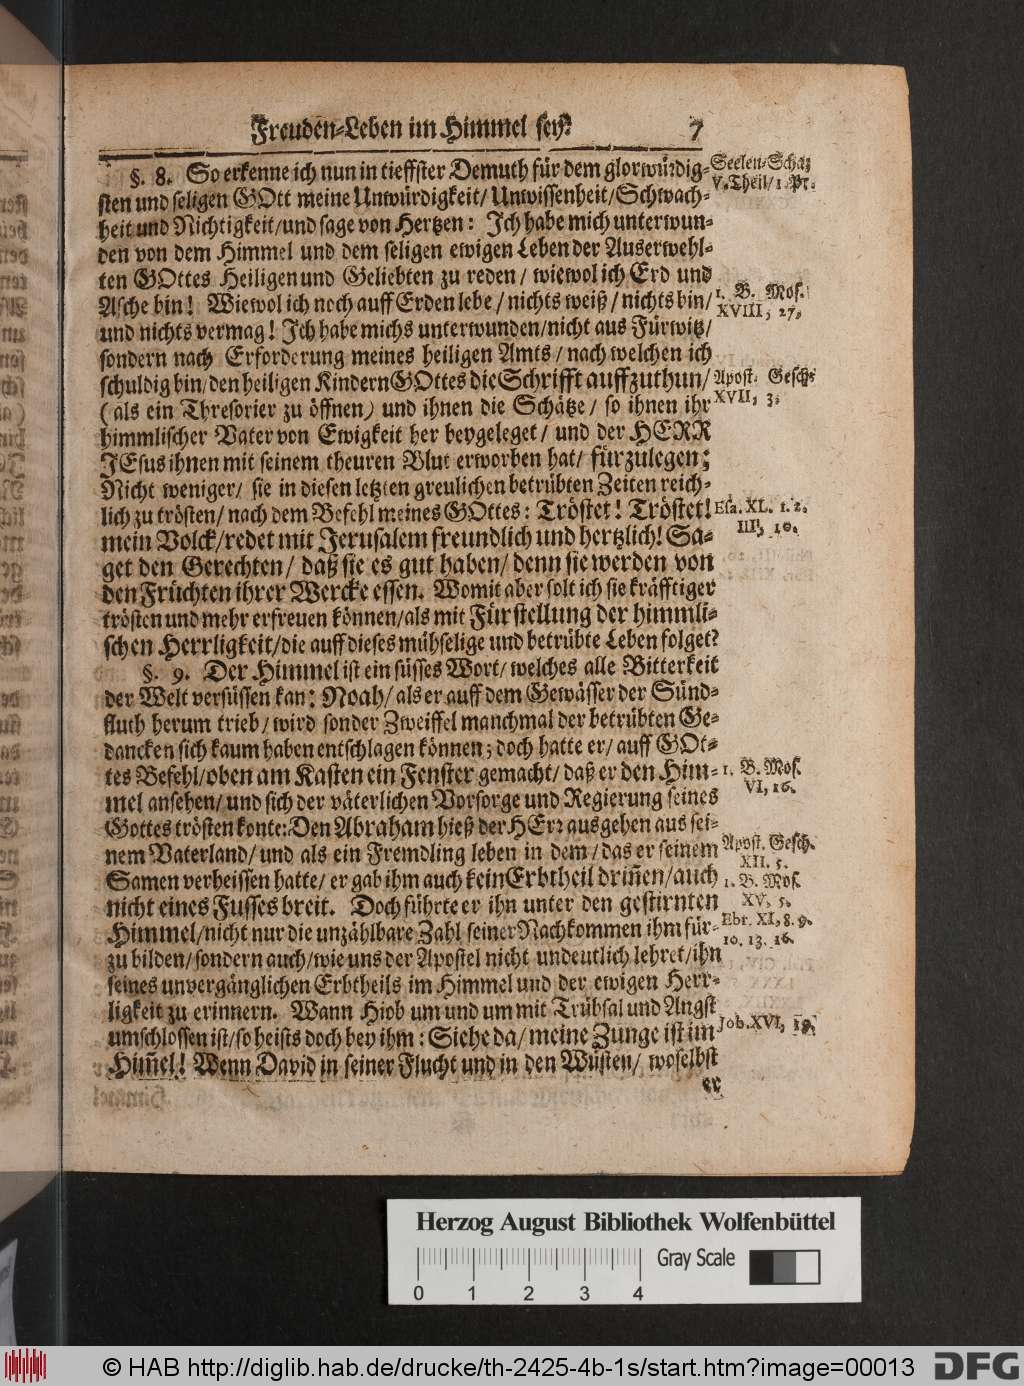 Freuden-Leben im Himmel sey? 7
§. 8. So erkenne ich nun in tieffster Demuth für dem glorwürdig-
sten und seligen GOtt meine Unwürdigkeit/ Unwissenheit/ Schwach-
heit und Nichtigkeit/ und sage von Hertzen: Ich habe mich unterwun-
den von dem Himmel und dem seligen ewigen Leben der Auserwehl-
ten GOttes Heiligen und Geliebten zu reden/ wiewol ich Erd und
Asche bin! Wiewol ich noch auff Erden lebe/ nichts weiß/ nichts bin/
und nichts vermag! Ich habe michs unterwunden/ nicht aus Fürwitz/
sondern nach Erforderung meines heiligen Amts/ nach welchen ich
schuldig bin/ den heiligen Kindern GOttes die Schrifft auffzuthun/
(als ein Thresorier zu öffnen) und ihnen die Schätze/ so ihnen ihr
himmlischer Vater von Ewigkeit her beygeleget/ und der HERR
JEsus ihnen mit seinem theuren Blut erworben hat/ fürzulegen;
Nicht weniger/ sie in diesen letzten greulichen betrübten Zeiten reich-
lich zu trösten/ nach dem Befehl meines GOttes: Tröstet! Tröstet!
mein Volck/ redet mit Jerusalem freundlich und hertzlich! Sa-
get den Gerechten/ daß sie es gut haben/ denn sie werden von
den Früchten ihrer Wercke essen. Womit aber solt ich sie kräfftiger
trösten und mehr erfreuen können/ als mit Fürstellung der himmli-
schen Herrligkeit/ die auff dieses mühselige und betrübte Leben folget?
§. 9. Der Himmel ist ein süsses Wort/ welches alle Bitterkeit
der Welt versüssen kan: Noah/ als er auff dem Gewässer der Sünd-
fluth herum trieb/ wird sonder Zweiffel manchmal der betrübten Ge-
dancken sich kaum haben entschlagen können; doch hatte er/ auff GOt-
tes Befehl/ oben am Kasten ein Fenster gemacht/ daß er den Him-
mel ansehen/ und sich der väterlichen Vorsorge und Regierung seines
Gottes trösten konte: Den Abraham hieß der HErr ausgehen aus sei-
nem Vaterland/ und als ein Fremdling leben in dem/ das er seinem
Samen verheissen hatte/ er gab ihm auch kein Erbtheil driñen/ auch
nicht eines Fusses breit. Doch führte er ihn unter den gestirnten
Himmel/ nicht nur die unzählbare Zahl seiner Nachkommen ihm für-
zu bilden/ sondern auch/ wie uns der Apostel nicht undeutlich lehret/ ihn
seines unvergänglichen Erbtheils im Himmel und der ewigen Herr-
ligkeit zu erinnern. Wann Hiob um und um mit Trübsal und Angst
umschlossen ist/ so heists doch bey ihm: Siehe da/ meine Zunge ist im
Him̃el! Wenn David in seiner Flucht und in den Wüsten/ woselbst
er
Seelen-Schatz
V. Theil/ 1. Pr.
1. B. Mos.
XVIII, 27.
Apost. Gesch.
XVII, 3.
Esa. XL. 1. 2.
III, 10.
1. B. Mos.
VI, 16.
Apost. Gesch.
XII. 5.
1. B. Mos.
XV, 5.
Ebr. XI, 8. 9.
10. 13. 16.
Job. XVI, 19.
Herzog August Bibliothek Wolfenbüttel
Gray Scale
0 1 2 3 4
© HAB http://diglib.hab.de/drucke/th-2425-4b-1s/start.htm?image=00013
DFG